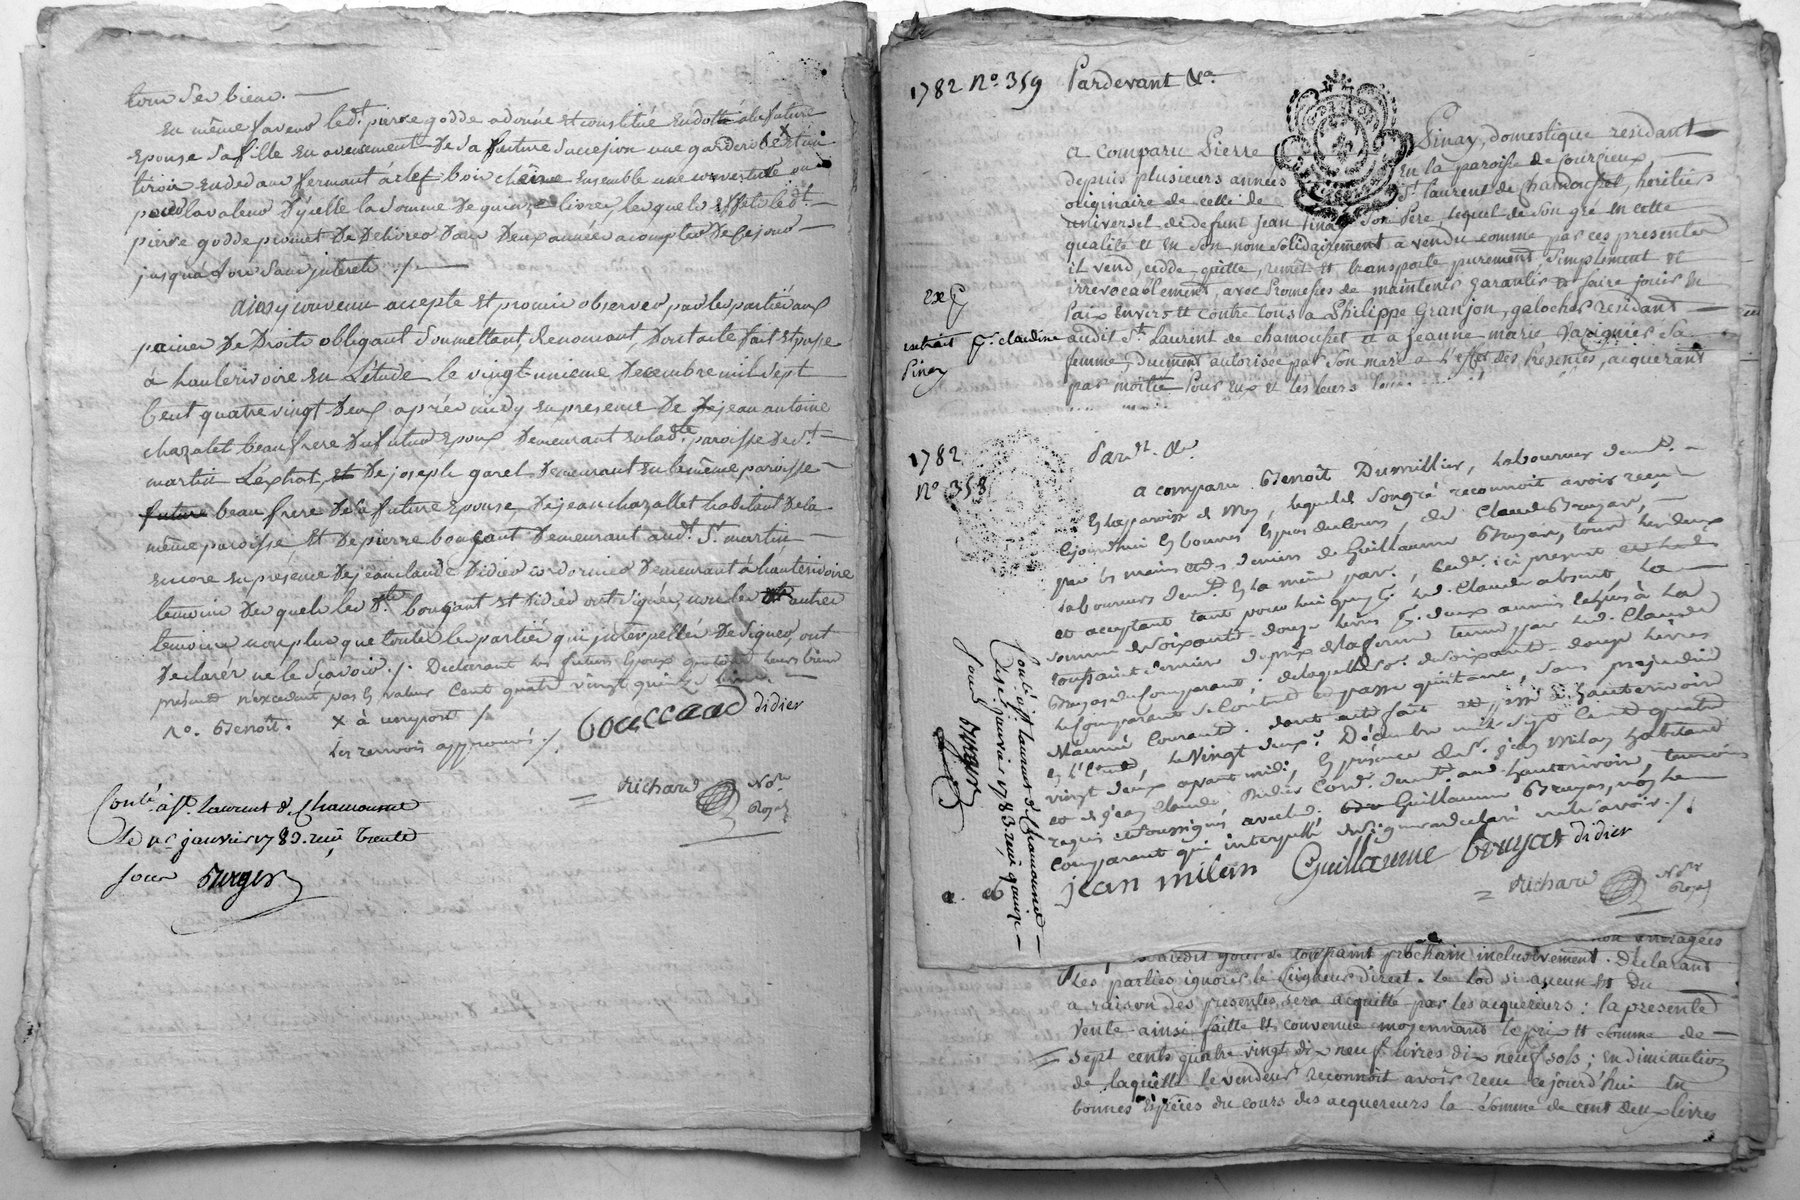 tous ses biens.
en même faveur led.t pierre godde a donné et constitué en dotte à la future
Epouse sa fille en avencement de sa future succession une garderobe X et un
tiroir en dedans fermant à clef bois chêne ensemble une couverture ou
pour la valeur d'ycelle la somme de quinze livres, lesquels effets led.t
pierre godde promet de délivrer dans deux années à compter de ce jour
jusqu'alors sans interets ./.
ainsy convenu accepté et promis observer par les parties aux
peines de droits obligeant soumettant renonçant dont acte fait et passé
à hauterivoire en l'étude le vingt unieme decembre mil sept
Cent quatre vingt deux après midy en presence de jean antoine
chazalet beau frere du futur epoux demeurant en lad.te paroisse de s.t
martin Lextrat, et de joseph garel demeurant en la même paroisse
future beau frere de la future epouse, de jean chazallet habitant de la
même paroisse et de pierre boucant demeurant aud.t S.t martin
encore en presence de jean claude Didier cordonnier demeurant à hauterivoire
temoins desquels les d.ts boucant et didier ont signé, non les autres
temoins non plus que toutes les parties qui interpellés de signer, ont
déclarér ne le sçavoir ./. Declarant les futurs Epoux que tous leurs biens
présents n'excedent pas la valeur Cent quatre vingt quinze livres
n.o Benoit. X à un port /.
les renvois approuvés ./.
bouccand didier
Richard No.re
Royal
Conté. à St. laurent d. Chamousset
Le janvier 1783. reçu trente
sous Berger
1782 N.o 359 Pardevant &.a
a comparu Pierre Pinay, domestique residant
depuis plusieurs années en la paroisse de Sourcieux,
originaire de celle de St laurent de chamousset, heritier
universel de defunt Jean Pinay son Père, lequel de son gré en cette
qualité et en son nom solidairement a vendu comme par ces presentes
il vend, cedde quitte, remet et transporte purement simplement et
irrevocablement, avec Promesses de maintenir garantir et faire jouir en
Paix envers et contre tous a Philippe Granjon, galocher residant
audit St. Laurent de chamousset et a jeanne marie Varignier sa
femme, duement autorisée par son mari a l'effet des présentes, acquerant
par moitié pour eux et les leurs
2 ex
extrait p.r claudine
Pinay
1782
N.o 358
Pard.t &.
A comparu Benoit Dumillier, laboureur dem.t
En la paroisse de Mey, lequel de son gré reconnoit avoir reçu
Cejourd'hui En bonnes Especes du Cours, de Claude Bruyas,
par les mains et des deniers de Guillaume Bruyas, tous les deux
laboureurs dem.t En la même par., led. ici present
et acceptant tant pour lui que p.r led. Claude absent la
somme de soixante-douze livres p.r deux années echues à la
toussaint derniere du prix de la ferme tenue par led. Claude
Bruyas du Comparant; de laquelle so.e de soixante-douze livres
le Comparant se Contente et passe quittance, sans prejudice
de l'année Courante. dont acte fait et passé à hauterivoire
En l'Etude, le Vingt deux.e Décembre mil sept Cent quatre
vingt deux avant midi, En présence de s.r jean Milan habitant
et de jean Claude Didier Cord. dem.t aud. hauterivoire, temoins
requis et soussignés avec led. Guillaume Bruyas, non le
Comparant qui interpellé de signer a declaré ne le savoir ./.
jean milan Guillaume bruyas didier
Richard No.re
Royal
Conté. à St laurent d. Chamousset
Le janvier 1783. reçu quinze
sous Berger
audit jour de toussaint prochain inclusivement. Declarant
les parties ignorer le Seigneur direct. le lod si aucun est du
a raison des presentes sera acquitté par les acquereurs: la presente
vente ainsi faitte et convenue moyennant le prix et somme de
sept cents quatre vingt dix neuf livres dix neuf sols; en diminution
de laquelle le vendeur reconnoit avoir reçu cejourd'hui en
bonnes espèces du cours des acquereurs la somme de cent deux livres